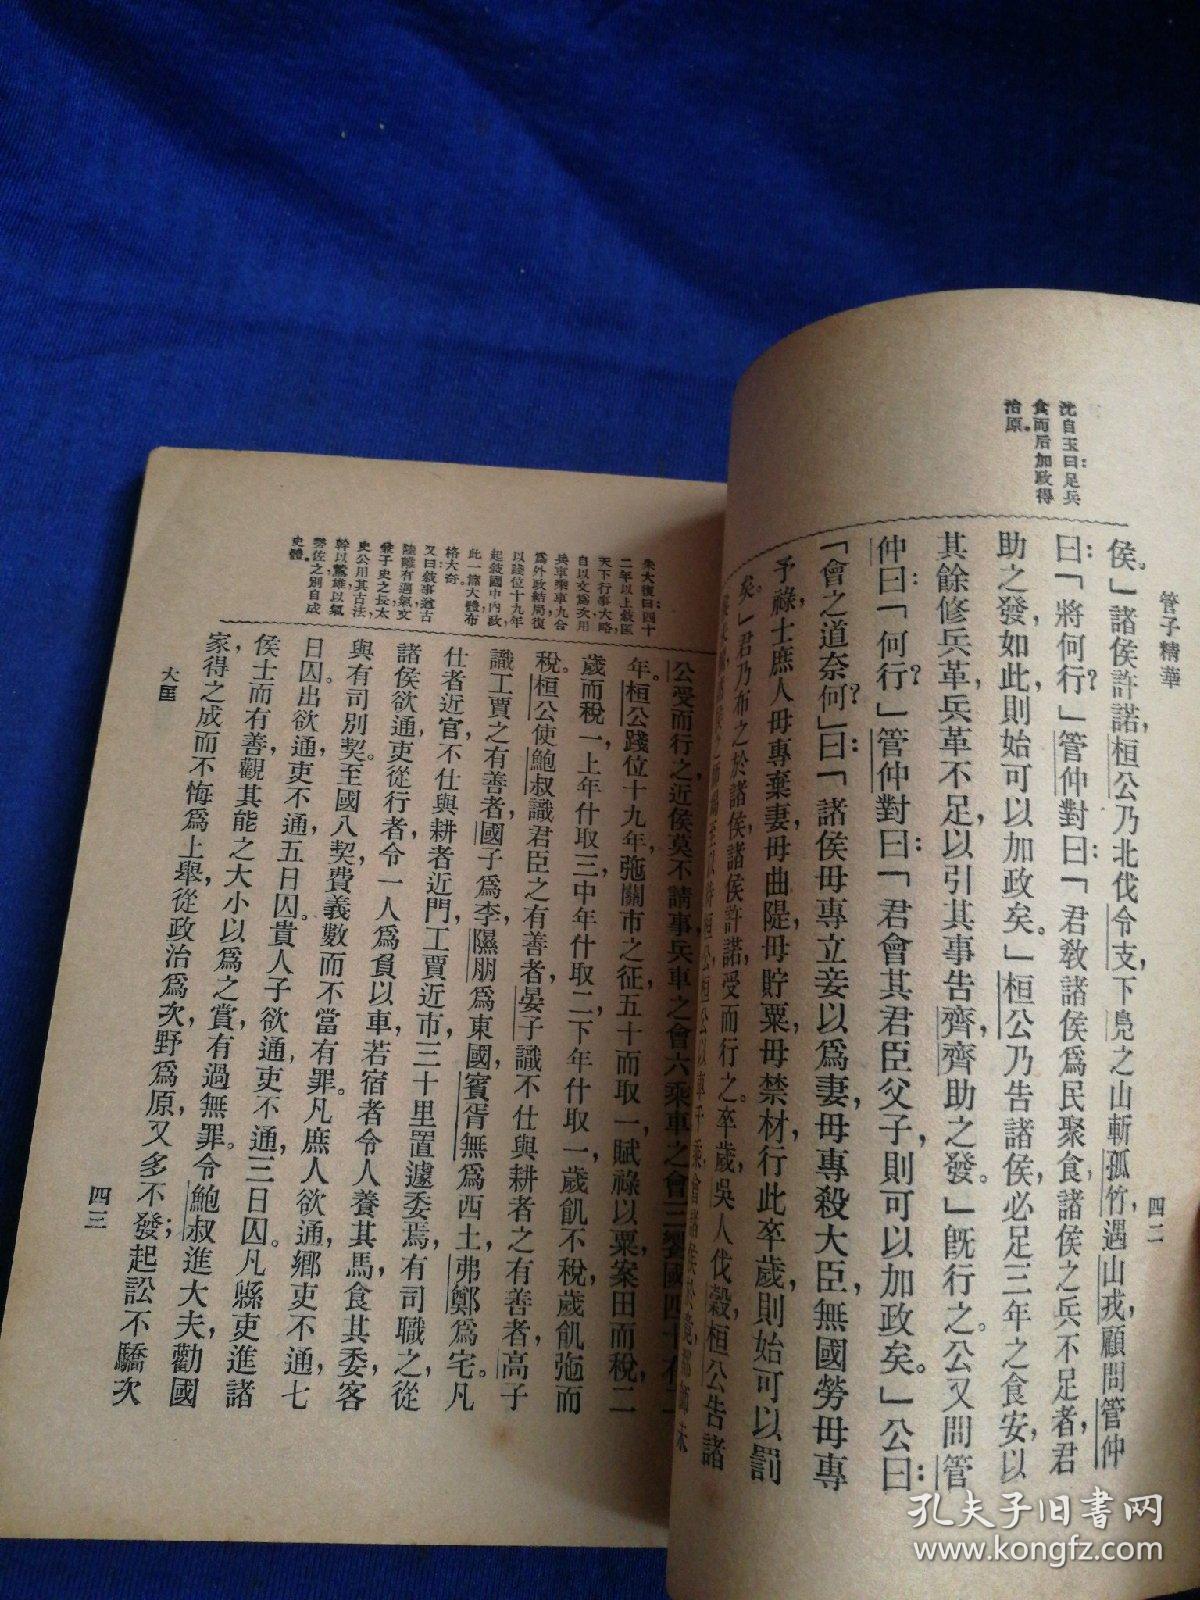 管子精華
四二
沈自玉曰：足兵
食而后加政得
治原。
侯。」諸侯許諾，桓公乃北伐令支，下鳧之山，斬孤竹，遇山戎，顧問管仲
曰：「將何行？」管仲對曰：「君教諸侯爲民聚食，諸侯之兵不足者，君
助之發，如此，則始可以加政矣。」桓公乃告諸侯，必足三年之食，安以
其餘修兵革，兵革不足，以引其事告齊，齊助之發。」旣行之。公又問管
仲曰：「何行？」管仲對曰：「君會其君臣父子，則可以加政矣。」公曰：
「會之道奈何？」曰：「諸侯毋專立妾以爲妻，毋專殺大臣，無國勞毋專
予祿，士庶人毋專棄妻，毋曲隄，毋貯粟，毋禁材，行此卒歲，則始可以罰
矣。」君乃布之於諸侯，諸侯許諾，受而行之。卒歲，吳人伐穀，桓公告諸
朱大復曰：四十
二年以上敍匡
天下行事大略
自以文爲次用
兵車乘車九合
爲外政結局復
以踐位十九年
起敍國中內政
此一篇大體布
格大奇。
又曰敍事遒古
陸離有遇氣文
餘子史之長太
史公用其古法
幹以鷙雄以氣
雲佐之別自成
史體。
公受而行之，近侯莫不請事，兵車之會六，乘車之會三，饗國四十有二
年。桓公踐位十九年，弛關市之征，五十而取一，賦祿以粟，案田而稅，二
歲而稅一，上年什取三，中年什取二，下年什取一，歲飢不稅，歲飢弛而
稅。桓公使鮑叔識君臣之有善者，晏子識不仕與耕者之有善者，高子
識工賈之有善者，國子爲李，隰朋爲東國，賓胥無爲西土，弗鄭爲宅。凡
仕者近官，不仕與耕者近門，工賈近市，三十里置遽委焉，有司職之，從
諸侯欲通，吏從行者，令一人爲負以車，若宿者，令人養其馬，食其委，客
與有司別契。至國八契，費義數而不當有罪。凡庶人欲通，鄉吏不通，七
日囚。出欲通，吏不通，五日囚。貴人子欲通，吏不通，三日囚。凡縣吏進諸
侯士而有善，觀其能之大小以爲之賞，有過無罪。令鮑叔進大夫，勸國
家，得之成而不悔爲上舉，從政治爲次，野爲原，又多不發，起訟不驕，次
大匡
四三
孔夫子旧书网
www.kongfz.com